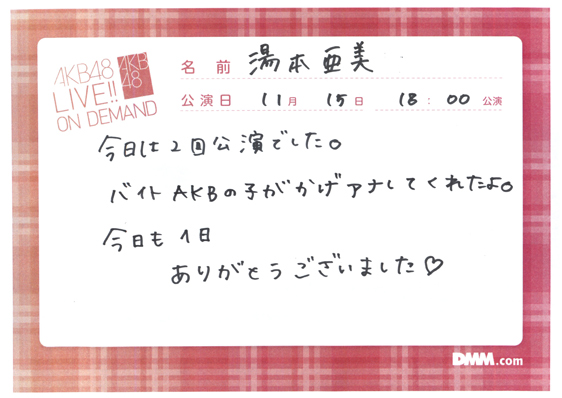 AKB48
LIVE!!
ON DEMAND
AKB
48
名前 湯本亜美
公演日 11月 15日 18:00 公演
今日は2回公演でした。
バイトAKBの子がかげアナしてくれたよ。
今日も1日
ありがとうございました♡
DMM.com